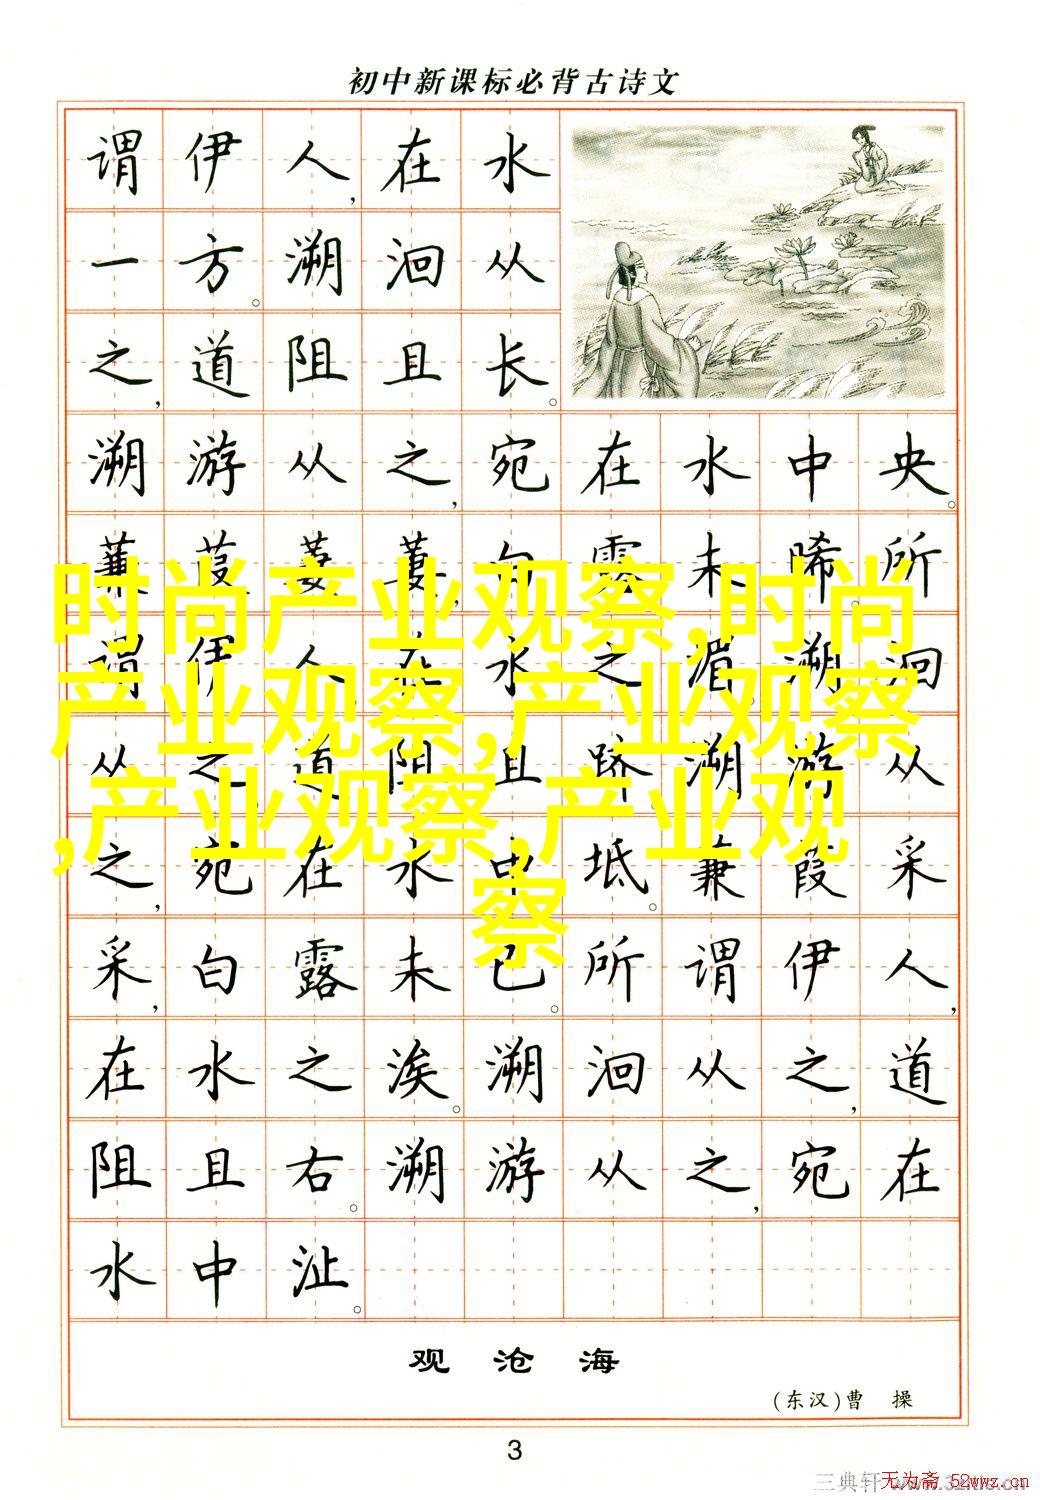 初中新课标必背古诗文
谓伊人,在水
一方。溯洄从
之,道阻且长。
溯游从之,宛在水中央。
蒹葭萋萋,白露未晞。所
谓伊人,在水之湄。溯洄
从之,道阻且跻。溯游从
之,宛在水中坻。蒹葭采
采,白露未已。所谓伊人,
在水之涘。溯洄从之,道
阻且右。溯游从之,宛在
水中沚。
时尚产业观察,时尚
产业观察,产业观察
,产业观察,产业观
察
观沧海
(东汉)曹 操
3
三典轩
无为斋 52wwz.cn